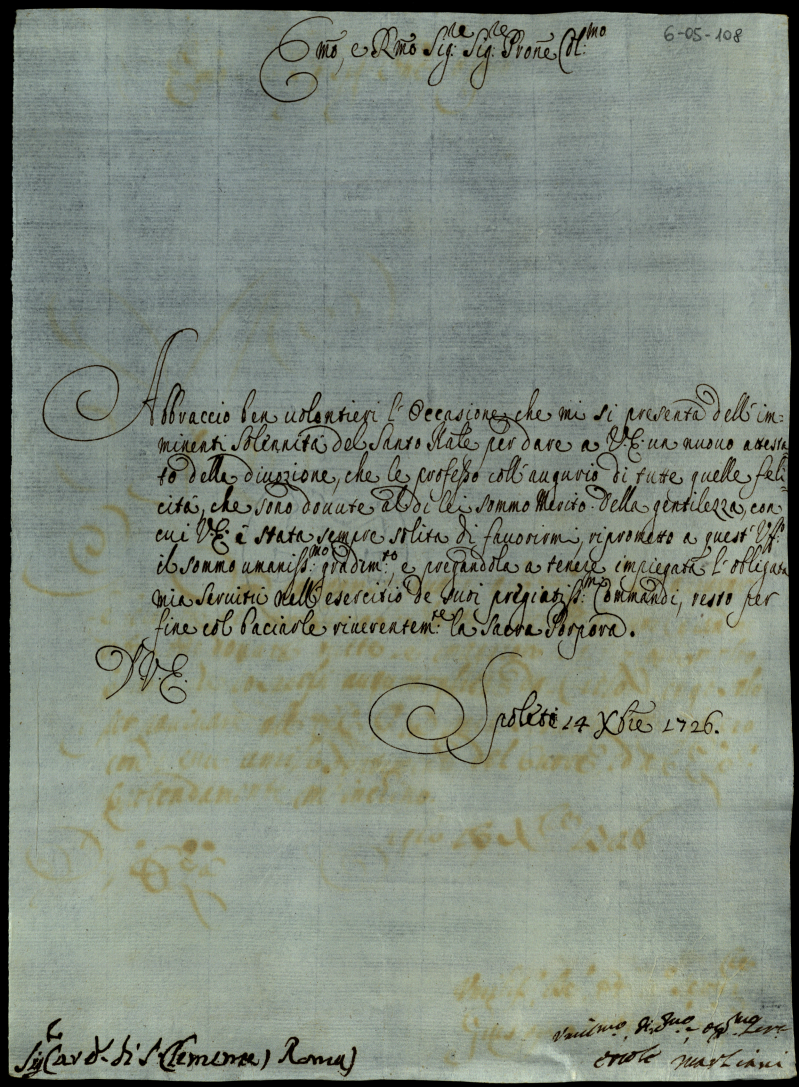 6-05-108
Emo, e Rmo Sig.re Sig.re Prone Col.mo
Abbraccio ben uolontieri l'Occasione, che mi si presenta dell'im-
minenti Solennità del Santo Natle per dare a V.E. un nuouo attesta
to della diuozione, che le professo coll'augurio di tutte quelle feli-
cità, che sono douute al di lei sommo Merito. Della gentilezza, con
cui V.E. è stata sempre solita di fauorirmi, riprometto a quest'Uff.o
il sommo umaniss.mo gradim.to, e pregandola a tenere impiegata l'obligata
mia Seruitù nell'esercitio de suoi pregiatiss.mi Commandi, resto per
fine col baciarle riuerentem.te la Sacra Porpora.
D.V.E.
Spoleti 14 Xbre 1726.
Sig.r Card.l di S. Clemente) Roma)
Umilmo, di.mo, obb.mo Ser.e
Ercole Marliani